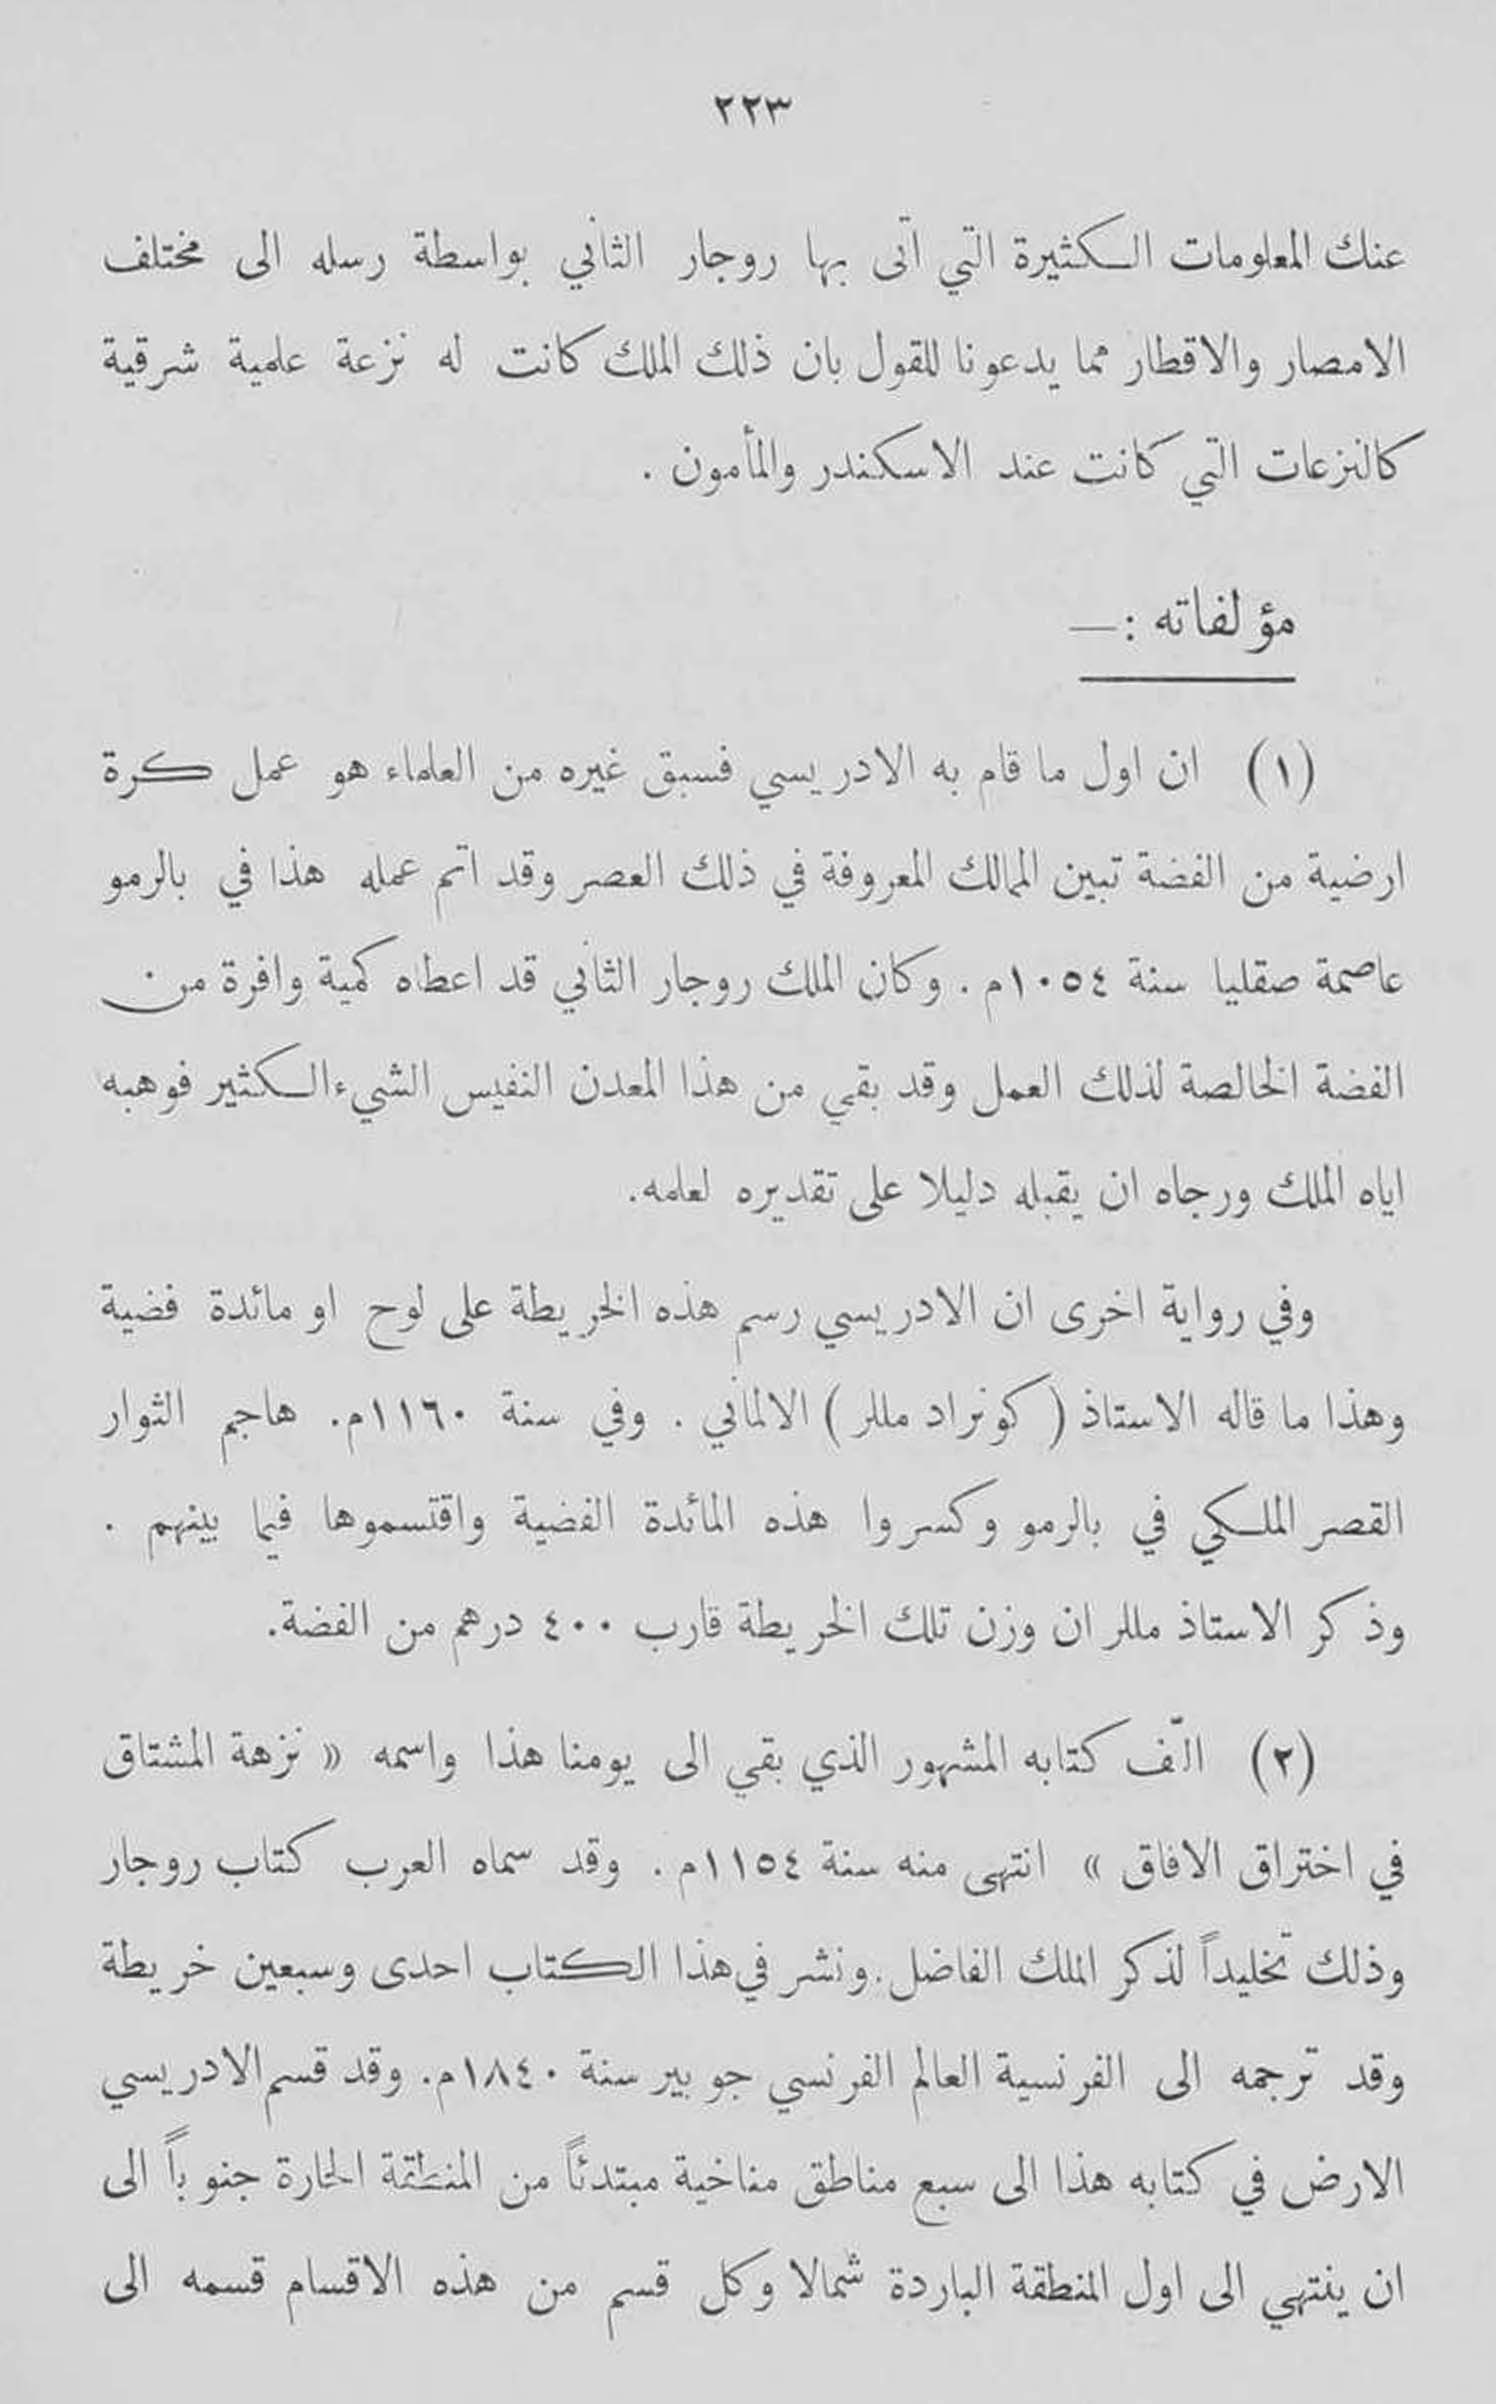 ٢٢٣
عنك المعلومات الكثيرة التي اتى بها روجار الثاني بواسطة رسله الى مختلف
الامصار والاقطار مما يدعونا للقول بان ذلك الملك كانت له نزعة علمية شرقية
كالنزعات التي كانت عند الاسكندر والمأمون .
مؤلفاته : —
(١) ان اول ما قام به الادريسي فسبق غيره من العلماء هو عمل كرة
ارضية من الفضة تبين الممالك المعروفة في ذلك العصر وقد اتم عمله هذا في بالرمو
عاصمة صقليا سنة ١٠٥٤م . وكان الملك روجار الثاني قد اعطاه كمية وافرة من
الفضة الخالصة لذلك العمل وقد بقي من هذا المعدن النفيس الشيء الكثير فوهبه
اياه الملك ورجاه ان يقبله دليلا على تقديره لعلمه.
وفي رواية اخرى ان الادريسي رسم هذه الخريطة على لوح او مائدة فضية
وهذا ما قاله الاستاذ ( كونراد مللر ) الالماني . وفي سنة ١١٦٠م. هاجم الثوار
القصر الملكي في بالرمو وكسروا هذه المائدة الفضية واقتسموها فيما بينهم .
وذكر الاستاذ مللر ان وزن تلك الخريطة قارب ٤٠٠ درهم من الفضة.
(٢) الّف كتابه المشهور الذي بقي الى يومنا هذا واسمه « نزهة المشتاق
في اختراق الافاق » انتهى منه سنة ١١٥٤م . وقد سماه العرب كتاب روجار
وذلك تخليداً لذكر الملك الفاضل. ونشر في هذا الكتاب احدى وسبعين خريطة
وقد ترجمه الى الفرنسية العالم الفرنسي جوبير سنة ١٨٤٠م. وقد قسم الادريسي
الارض في كتابه هذا الى سبع مناطق مناخية مبتدئاً من المنطقة الحارة جنوباً الى
ان ينتهي الى اول المنطقة الباردة شمالا وكل قسم من هذه الاقسام قسمه الى